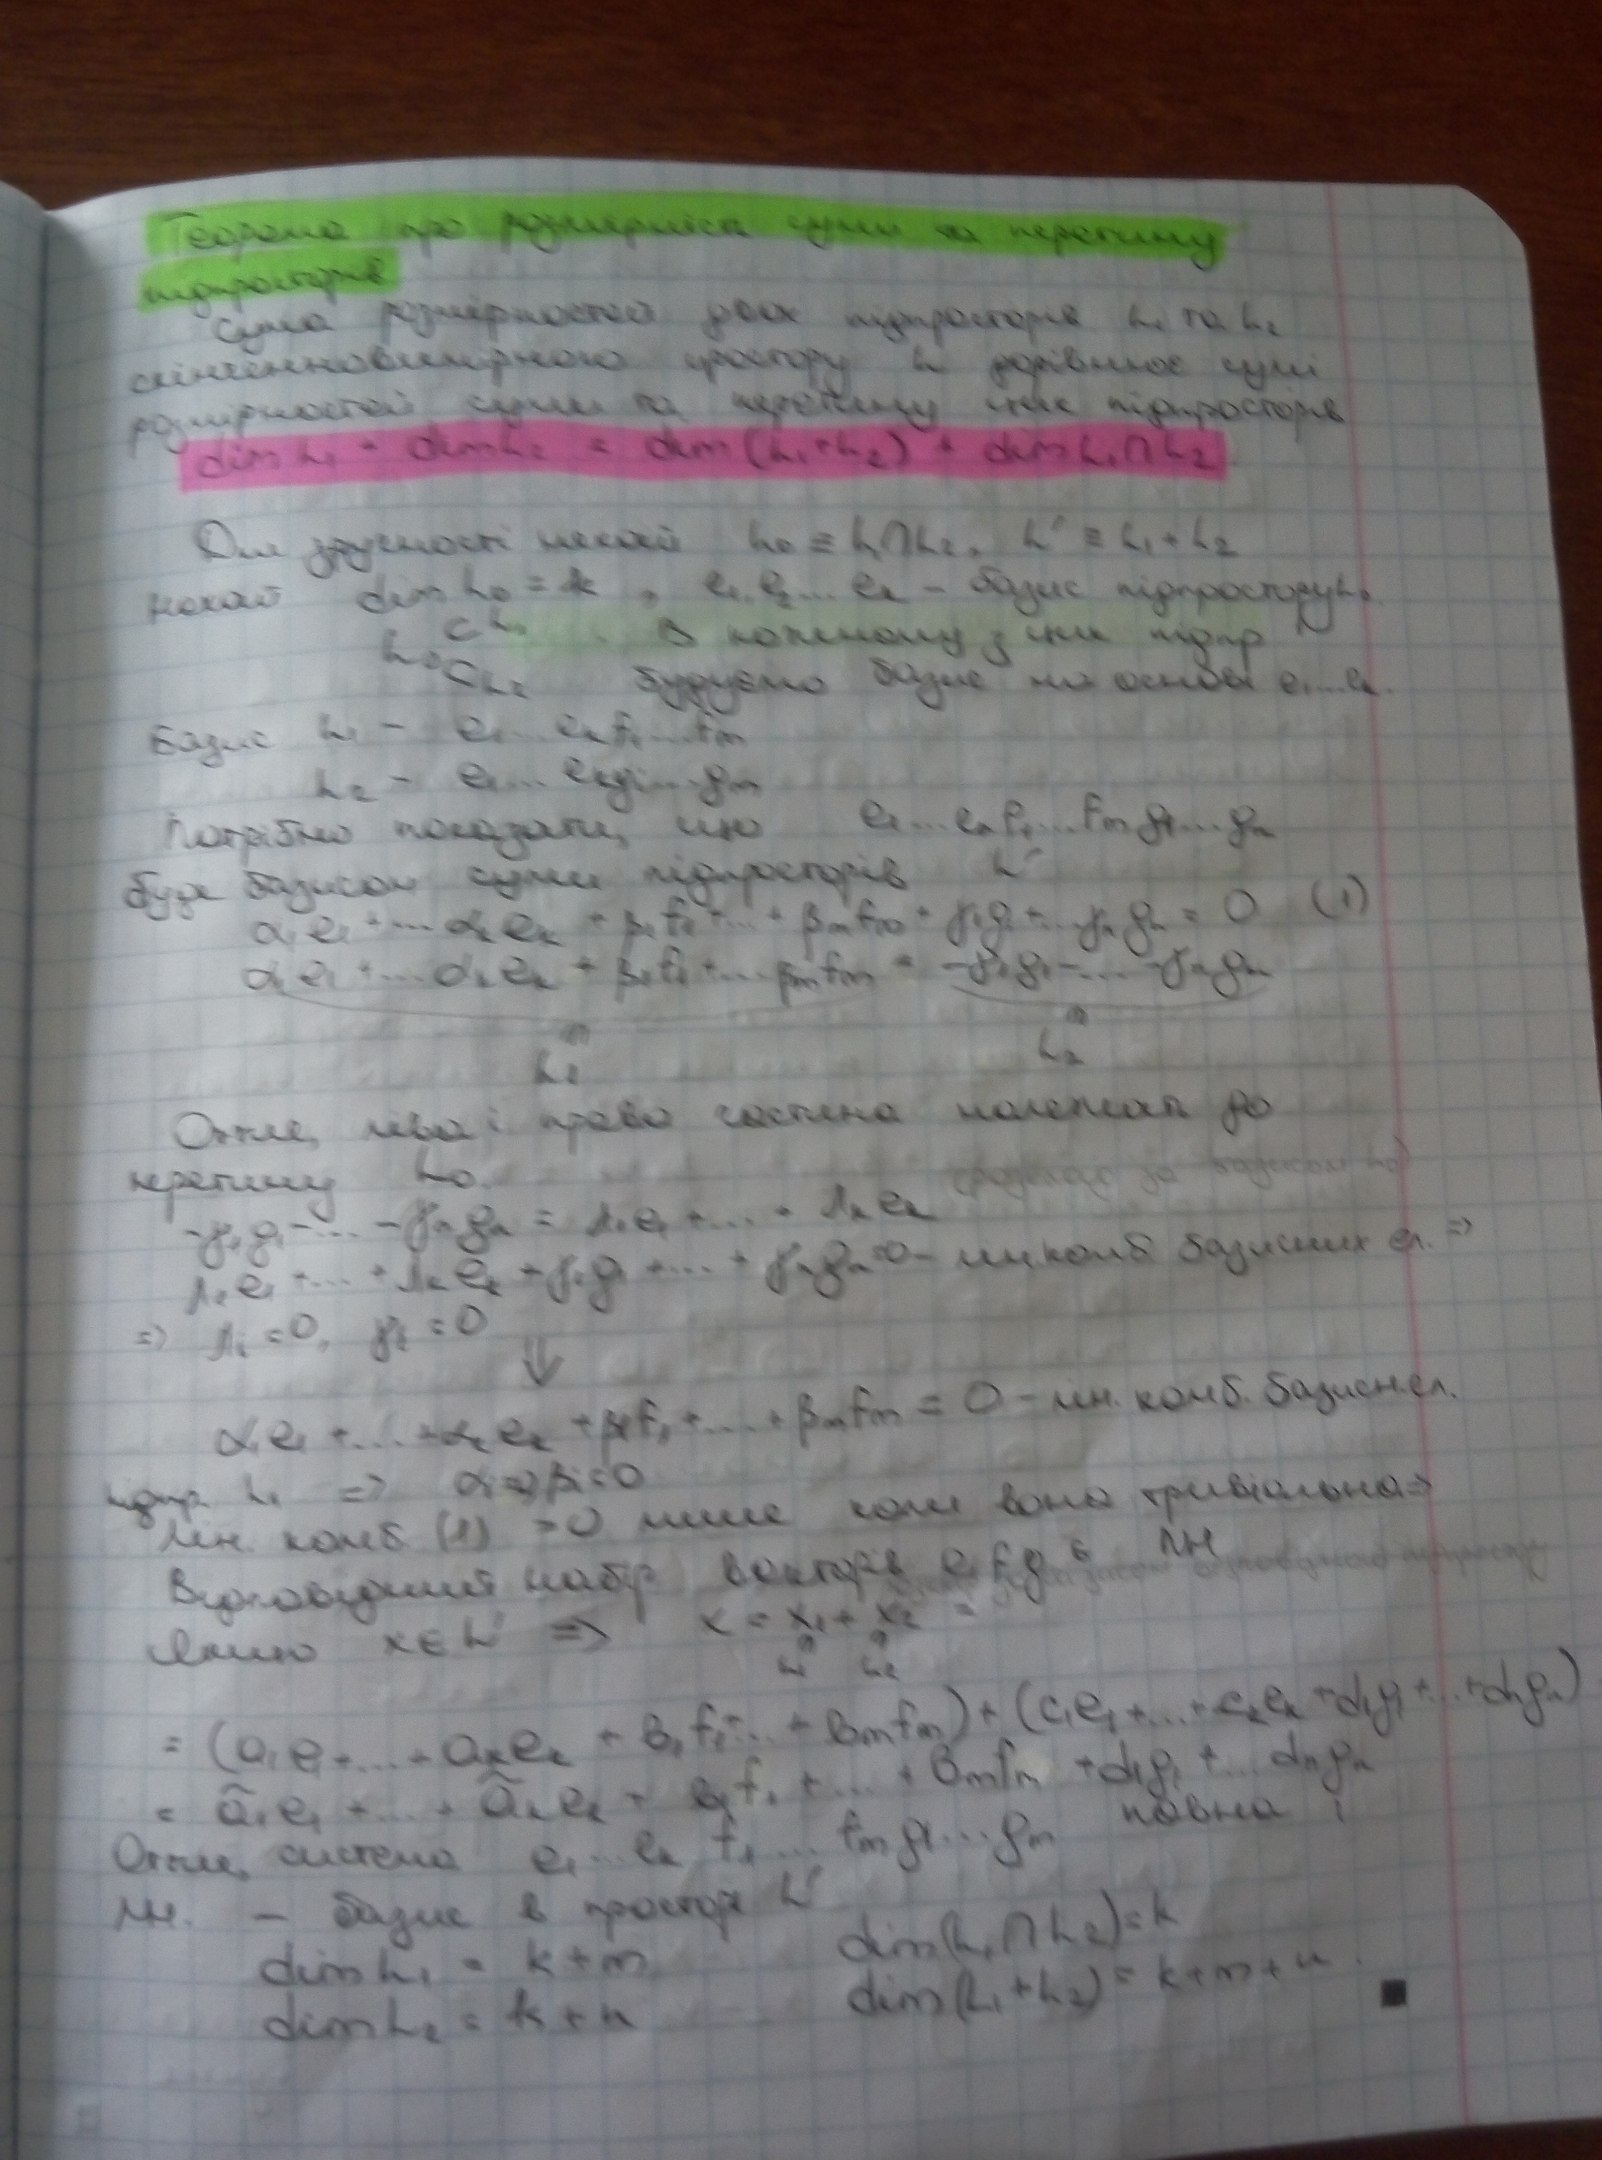 Теорема про розмірність суми та перетину
підпросторів
Сума розмірностей двох підпросторів L₁ та L₂
скінченновимірного простору L дорівнює сумі
розмірностей суми та перетину цих підпросторів
dim L₁ + dim L₂ = dim (L₁+L₂) + dim L₁∩L₂
Для зручності нехай L₀ ≡ L₁∩L₂, L' ≡ L₁+L₂
Нехай dim L₀ = k, e₁ e₂ ... eₖ – базис підпростору L₀
L₀ ⊂ L₁ . В кожному з цих підпр
⊂ L₂ будуємо базис на основі e₁...eₖ.
Базис L₁ – e₁...eₖ f₁...fₘ
L₂ – e₁... eₖ g₁...gₘ
Потрібно показати, що e₁...eₖ f₁...fₘ g₁...gₙ
буде базисом суми підпросторів L'
α₁e₁+...αₖeₖ + β₁f₁+...+ βₘfₘ + γ₁g₁+...γₙgₙ = 0 (1)
α₁e₁+...αₖeₖ + β₁f₁+...βₘfₘ = -γ₁g₁-...-γₙgₙ
∩ ∩
L₁ L₂
Отже, ліва і права частина належать до
перетину L₀. (розклад за базисом L₀)
-γ₁g₁-...-γₙgₙ = λ₁e₁+...+ λₖeₖ
λ₁e₁+...+λₖeₖ+γ₁g₁+...+γₙgₙ=0 – лін комб базисних ел. =>
=> λᵢ=0, γᵢ=0
⇓
α₁e₁+...+αₖeₖ+β₁f₁+...+βₘfₘ = 0 – лін. комб. базисн.ел.
підпр. L₁ => αᵢ=0, βᵢ=0
Лін. комб (1) =0 лише коли вона тривіальна =>
Відповідний набір векторів e, f, g є ЛН
Якщо x∈L' => x = x₁ + x₂ =
∩ ∩
L₁ L₂
= (a₁e₁+...+aₖeₖ + b₁f₁+...+bₘfₘ)+(c₁e₁+...+cₖeₖ+d₁g₁+...+dₙgₙ)
= ã₁e₁+...+ãₖeₖ + b₁f₁+...+bₘfₘ+d₁g₁+...dₙgₙ
Отже, система e₁...eₖ f₁...fₘ g₁...gₘ повна і
ЛН. – базис в просторі L'
dim L₁ = k+m dim(L₁∩L₂)=k
dim L₂ = k+n dim(L₁+L₂)= k+m+n.